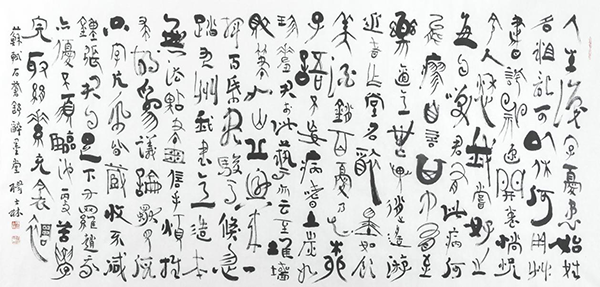 人生識字憂患始姓
名粗記可以休何用草
書誇神速開卷惝怳
令人愁我嘗好之
每自笑君有此病何
能瘳自言其中有至
樂適意無異逍遙游
近者作堂名醉墨如飲
美酒銷百憂乃知柳
子語不妄病嗜土炭如
珍羞君於此藝亦云至堆牆
敗筆如山丘興來一
揮百紙盡駿馬倏忽
踏九州我書意造本
無法點畫信手煩推
求胡為議論獨見假
隻字片紙皆藏收不減
鍾張君自足下方羅趙我
亦優不須臨池更苦學
完取絹素充衾裯
蘇軾石蒼舒醉墨堂 楊士林